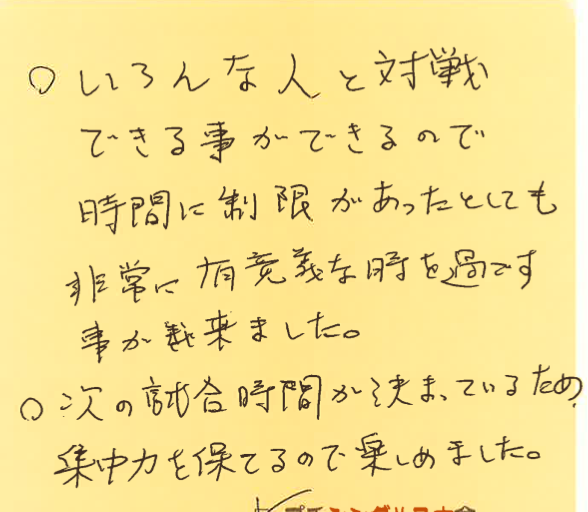 ○ いろんな人と対戦
できる事ができるので
時間に制限があったとしても
非常に有意義な時を過ごす
事が来ました。
○ 次の試合時間が決まっているため
集中力を保てるので楽しめました。